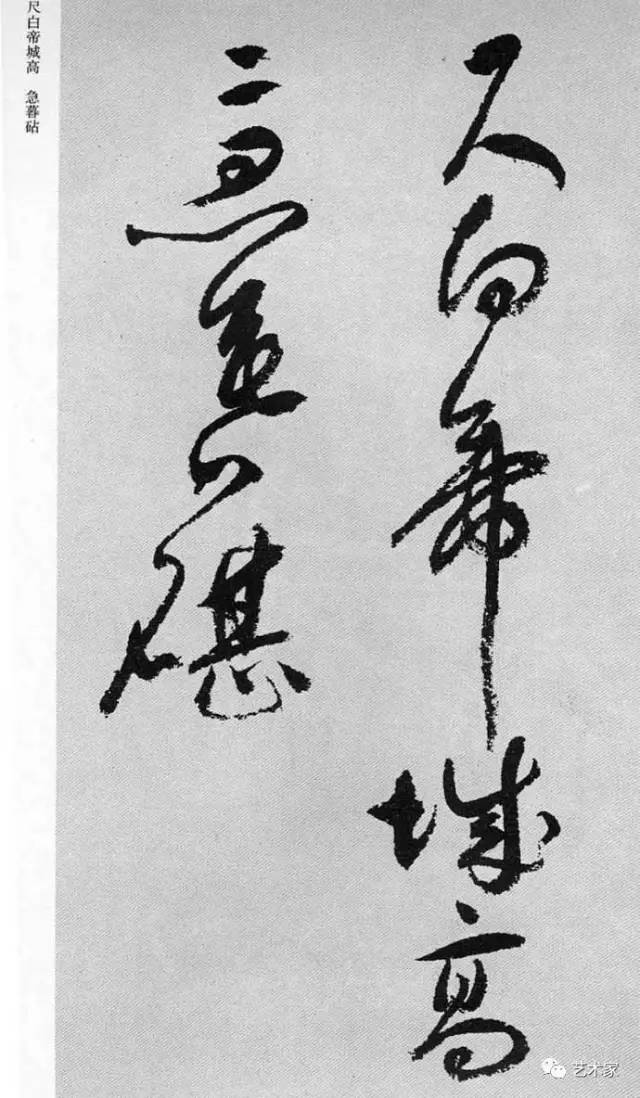 尺白帝城高
急暮砧
尺白帝城高　急暮砧
艺术家